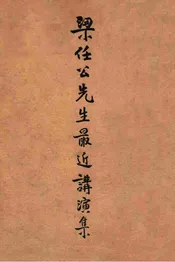 梁任公先生最近講演集